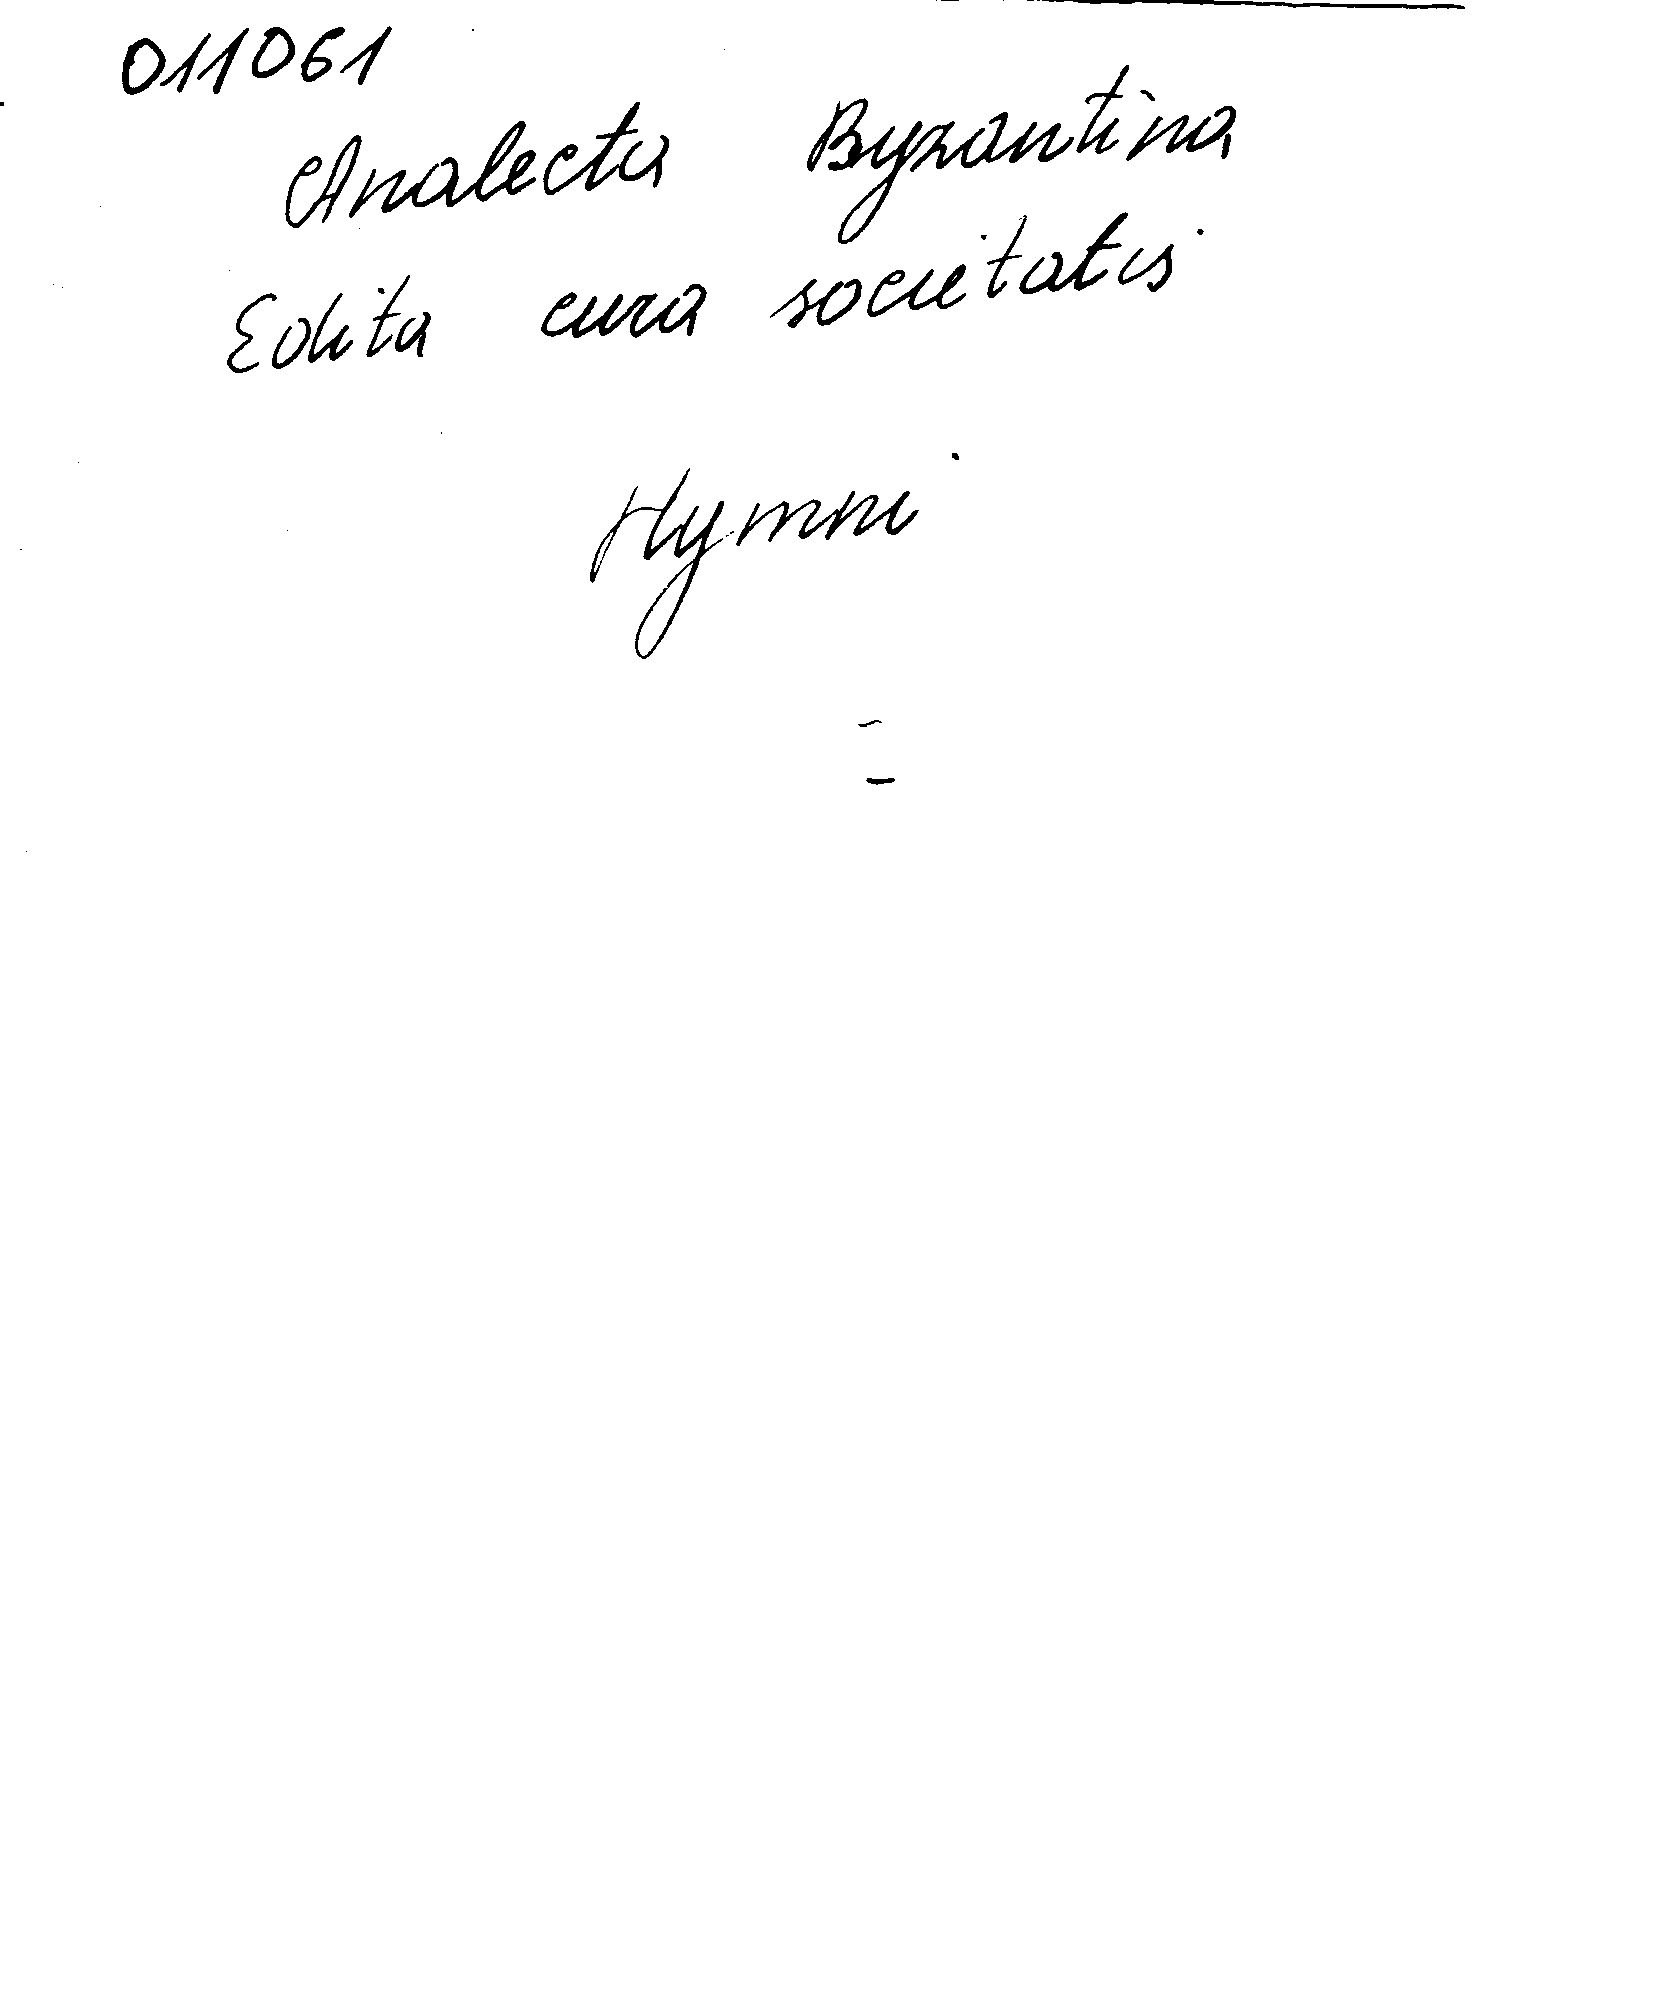 011061
Analecta Byzantina
Edita cura societatis
Hymni